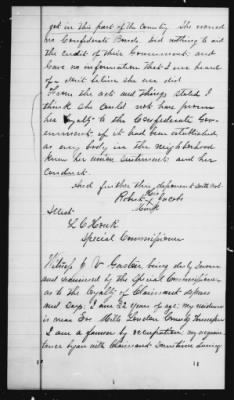 got in this part of the country. She owned
no Confederate Bonds, did nothing to aid
the credit of their Government and
Gave no information that I ever heard
of. I don't believe she ever did
From the acts and things stated I
think she could not have proven
her Loyalty to the Confederate Gov-
ernment if it had been established
as every body in the neighborhood
knew her union sentiments and her
conduct.
And further this deponent saith not.
Robert his X mark Jacobs
Attest.
L C Houk
Special Commissioner
Witness J V being duly sworn
and examined by the Special Commissioner
as to the loyalty of Claimant deposes
and says: I am 22 years of age: my residence
is near Mills Loudon County Tennessee
I am a farmer by occupation: my acquain
tance began with Claimant Sometime during